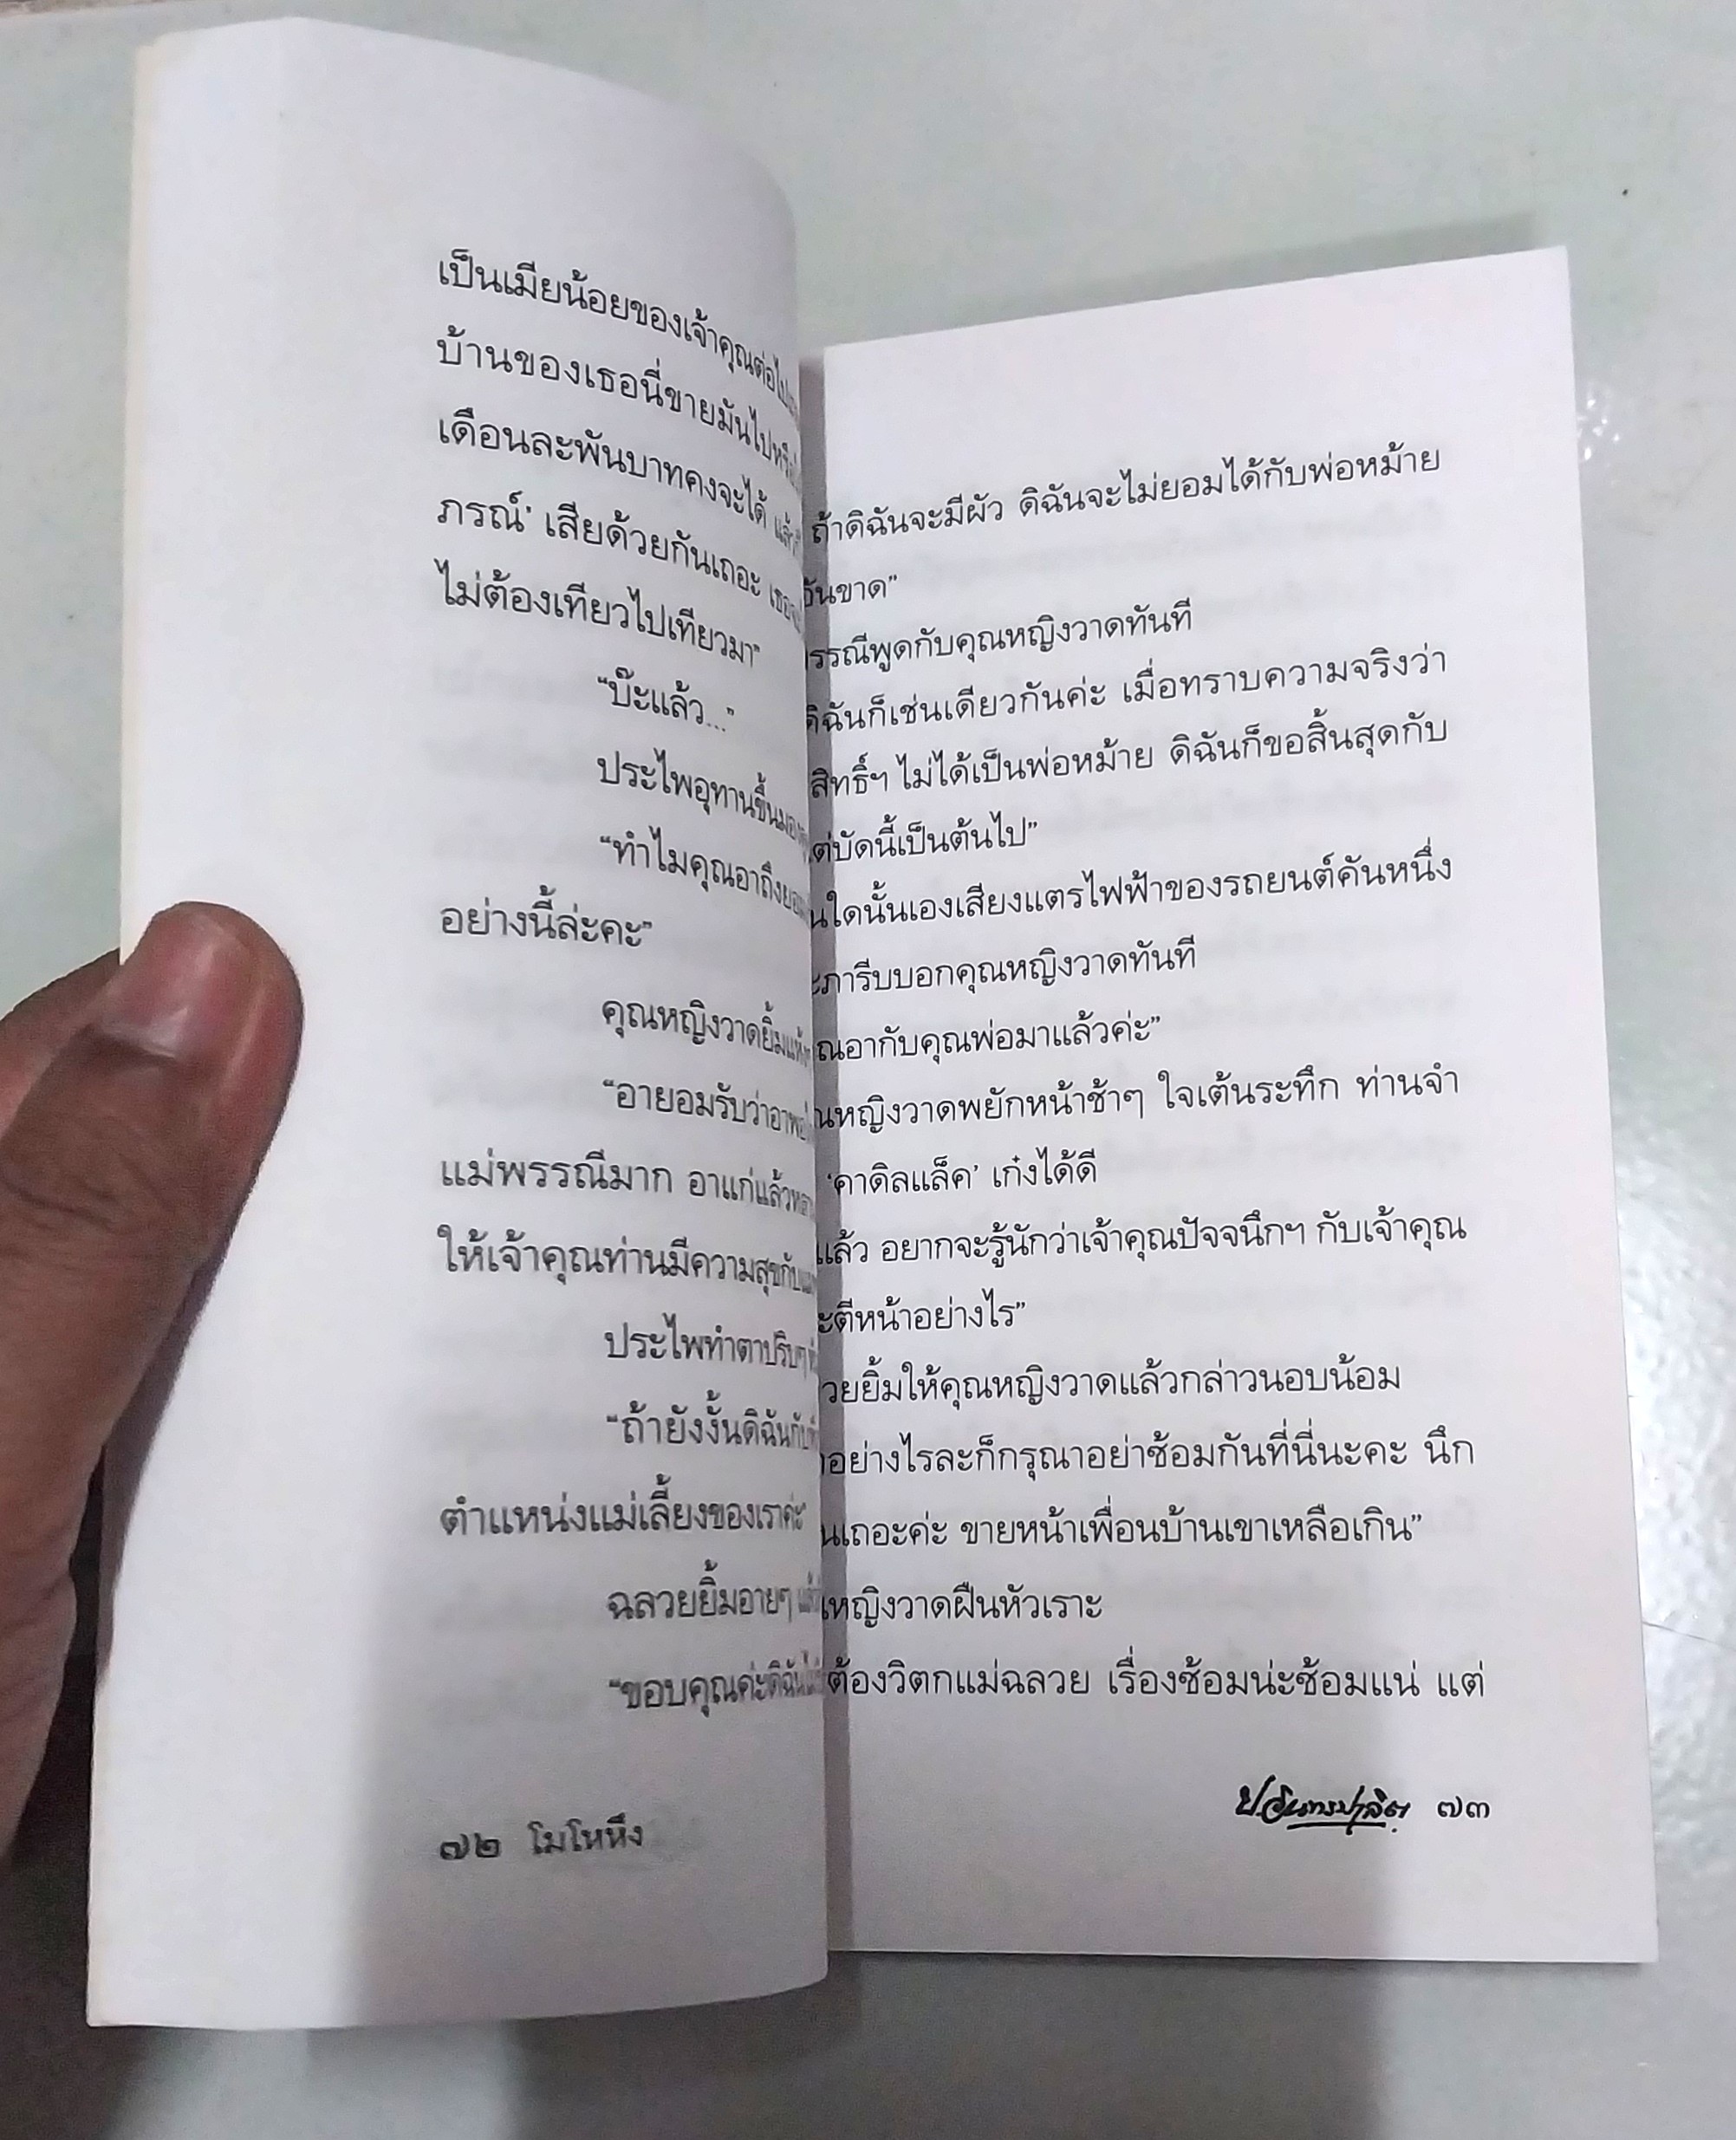 เป็นเมียน้อยของเจ้าคุณต่อไป
บ้านของเธอนี่ขายมันไป
เดือนละพันบาทคงจะได้
ภรณ์' เสียด้วยกันเถอะ
ไม่ต้องเทียวไปเทียวมา"
"บ๊ะแล้ว..."
ประไพอุทานขึ้น
"ทำไมคุณอาถึง
อย่างนี้ล่ะคะ"
คุณหญิงวาดยิ้ม
"อายอมรับว่าอา
แม่พรรณีมาก อาแก่แล้ว
ให้เจ้าคุณท่านมีความสุขกับ
ประไพทำตาปริบๆ
"ถ้ายังงั้นดิฉันกับ
ตำแหน่งแม่เลี้ยงของเราค่ะ"
ฉลวยยิ้มอายๆ
"ขอบคุณค่ะดิฉัน
๗๒ โมโหหึง
ถ้าดิฉันจะมีผัว ดิฉันจะไม่ยอมได้กับพ่อหม้าย
อันขาด"
รรณีพูดกับคุณหญิงวาดทันที
ดิฉันก็เช่นเดียวกันค่ะ เมื่อทราบความจริงว่า
สิทธิ์ฯ ไม่ได้เป็นพ่อหม้าย ดิฉันก็ขอสิ้นสุดกับ
บัดนี้เป็นต้นไป"
ใดนั้นเองเสียงแตรไฟฟ้าของรถยนต์คันหนึ่ง
ภารีบบอกคุณหญิงวาดทันที
ณอากับคุณพ่อมาแล้วค่ะ"
หญิงวาดพยักหน้าช้าๆ ใจเต้นระทึก ท่านจำ
'คาดิลแล็ค' เก๋งได้ดี
แล้ว อยากจะรู้นักว่าเจ้าคุณปัจจนึกฯ กับเจ้าคุณ
ะตีหน้าอย่างไร"
วยยิ้มให้คุณหญิงวาดแล้วกล่าวนอบน้อม
อย่างไรละก็กรุณาอย่าซ้อมกันที่นี่นะคะ นึก
เถอะค่ะ ขายหน้าเพื่อนบ้านเขาเหลือเกิน"
หญิงวาดฝืนหัวเราะ
ต้องวิตกแม่ฉลวย เรื่องซ้อมน่ะซ้อมแน่ แต่
ป.อินทรปาลิต ๗๓